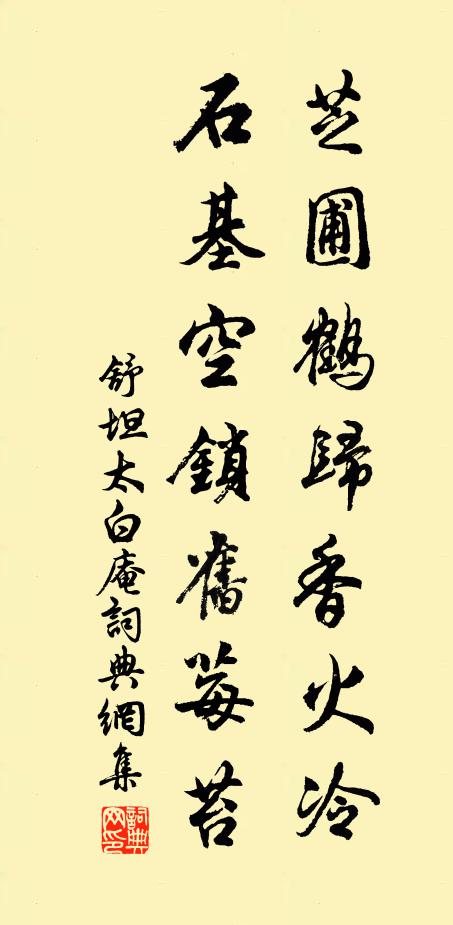 芝圃鶴歸香火冷
石基空鎖舊莓苔
舒坦太白庵詞典網集
詞典網印